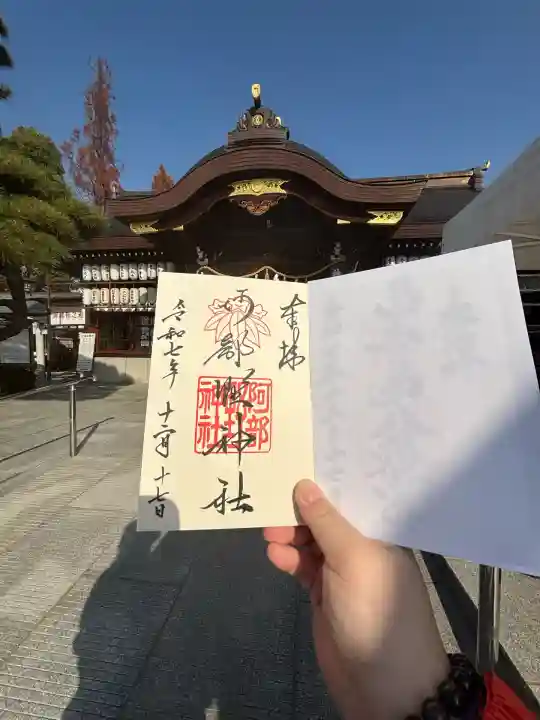 奉拝
阿部野神社
阿部野
神社
令和七年十二月十七日